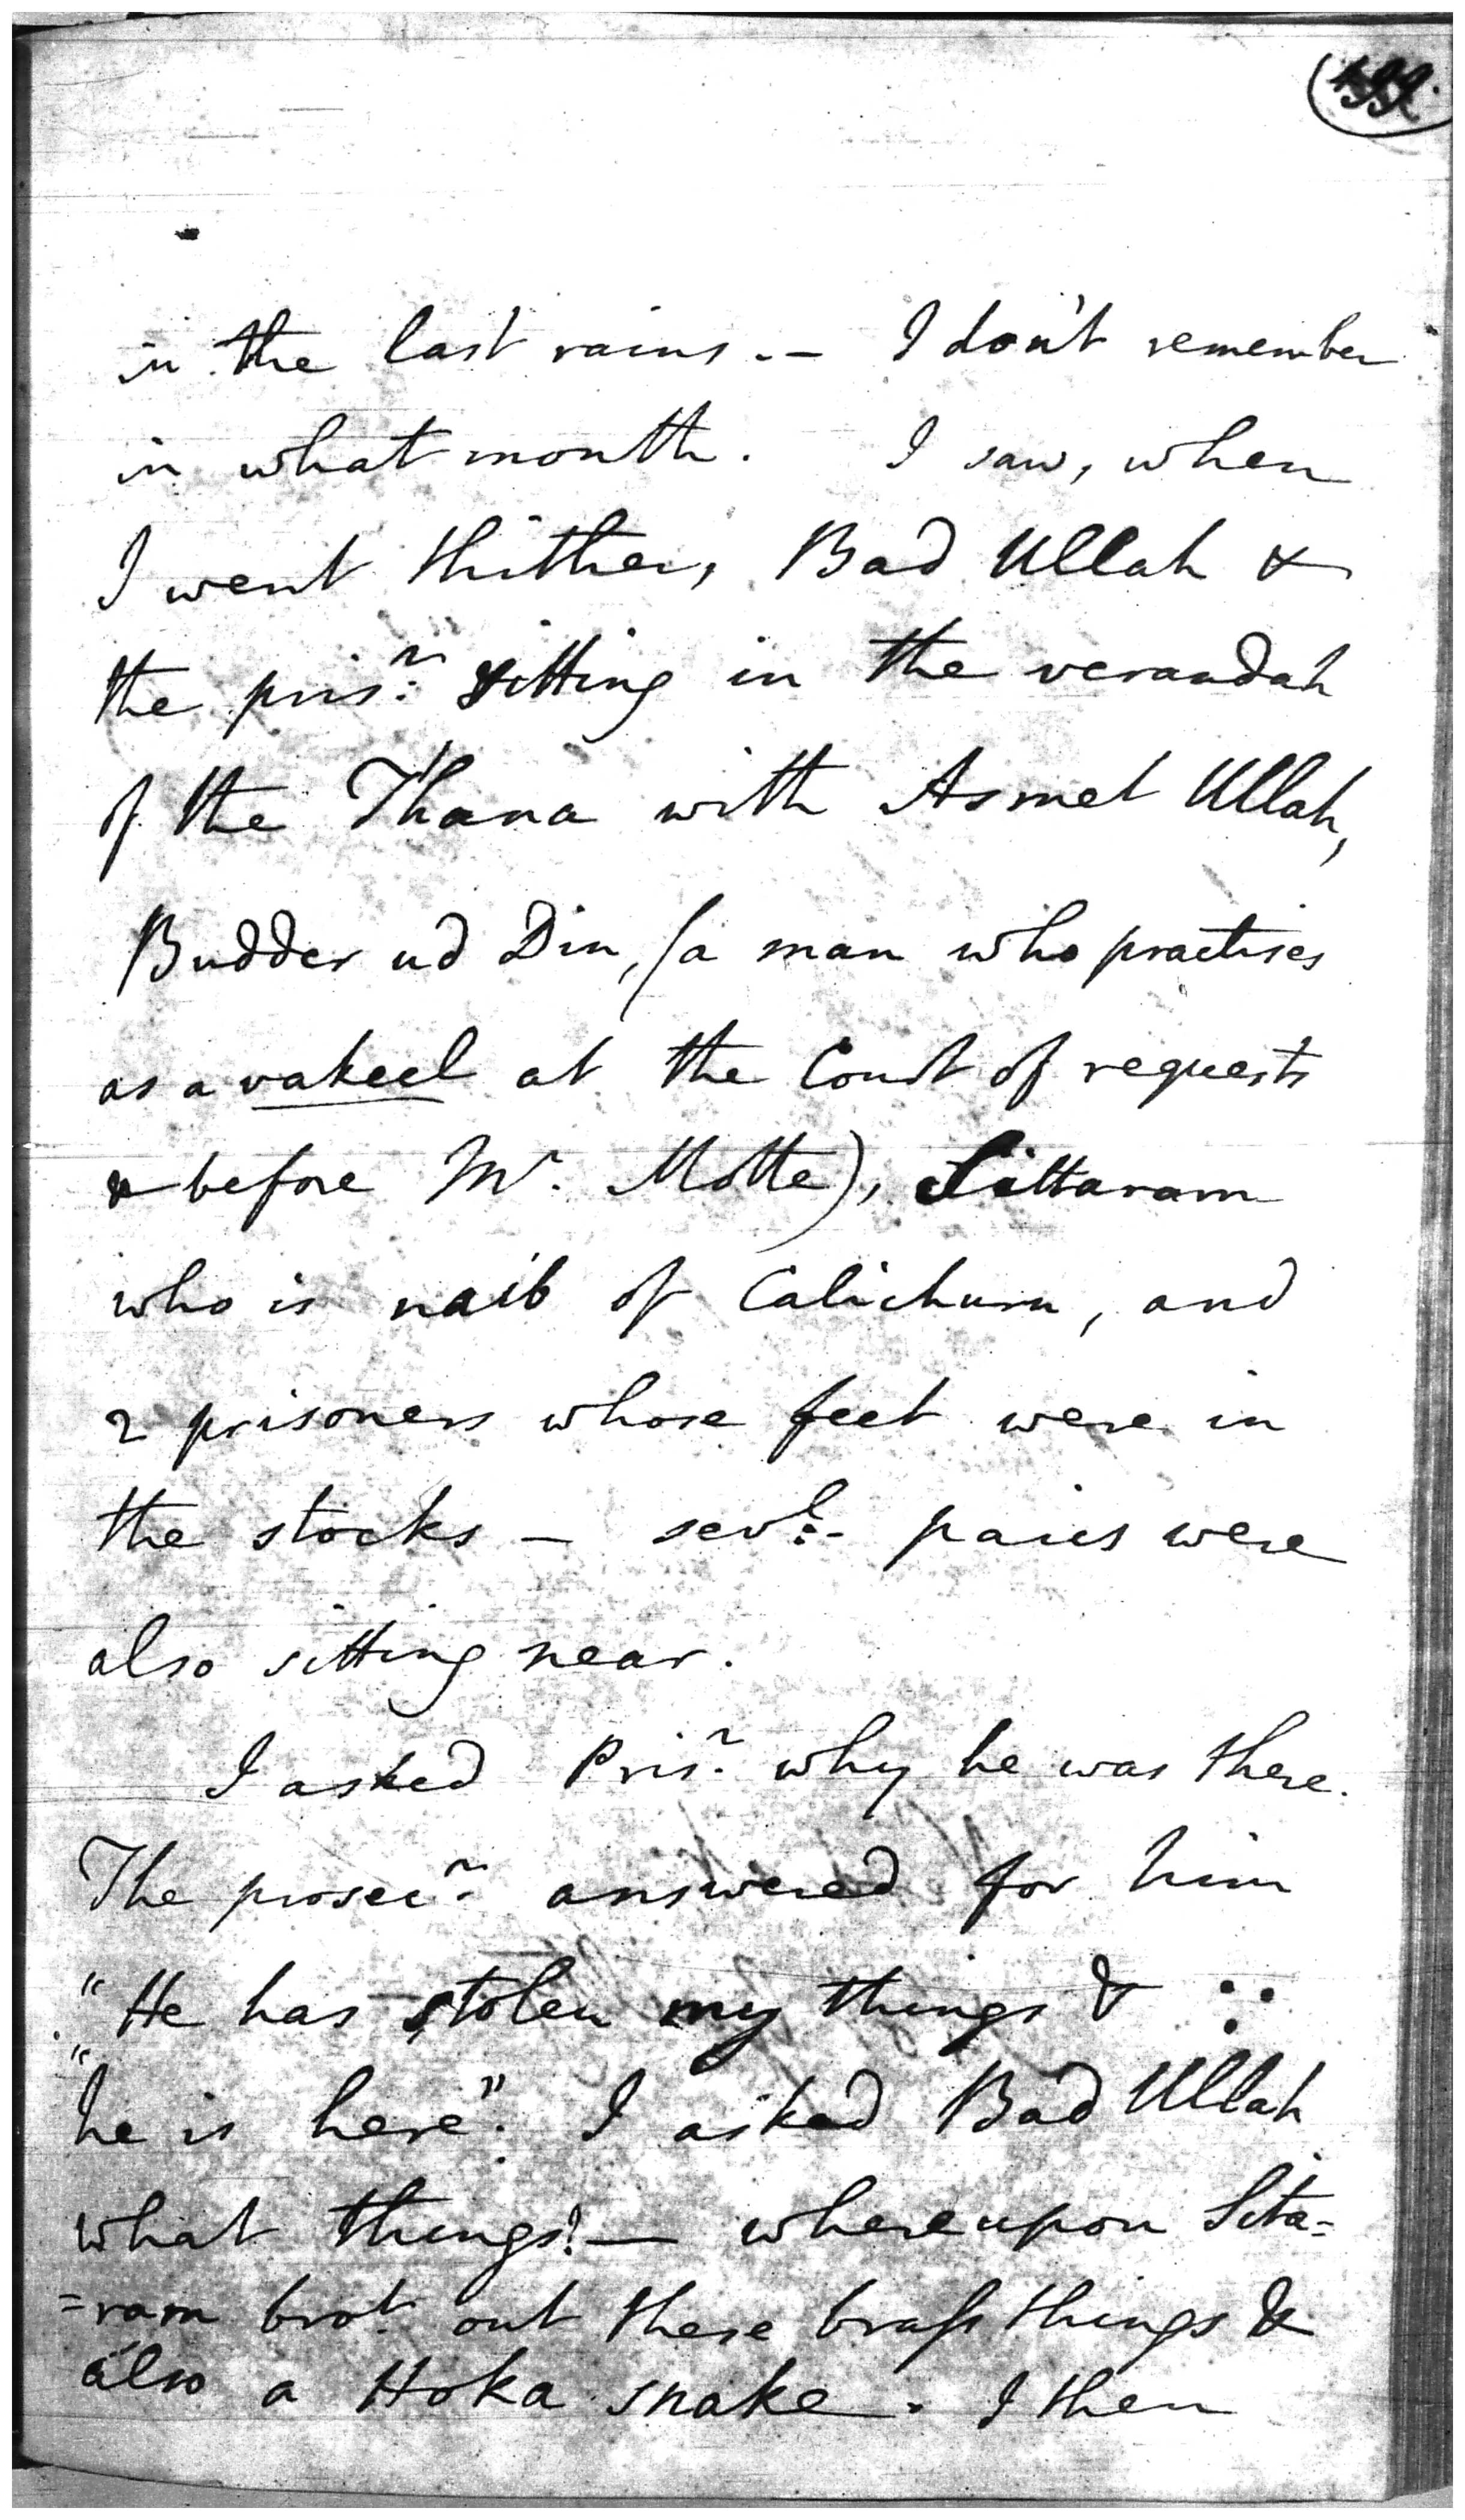 in the last rains. — I don't remember
in what month. I saw, when
I went thither, Bad Ullah &
the prisr. sitting in the verandah
of the Thana with Asmet Ullah,
Budder ud Din, (a man who practises
as a vakeel at the Court of requests
& before Mr. Motte), Sittaram
who is naib of Calichurn, and
2 prisoners whose feet were in
the stocks — sevl. paies were
also sitting near.
I asked Prisr. why he was there.
The prosecr. answered for him
"He has stolen my things &
"he is here". I asked Bad Ullah
what things? — whereupon Sita=
=ram brot. out these brass things &
also a Hoka snake. I then